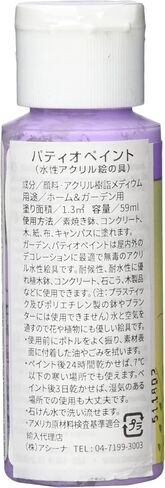 パティオペイント
(水性アクリル絵の具)
成分/顔料・アクリル樹脂メディウム
用途/ホーム&ガーデン用
塗り面積/1.3㎡ 容量/59ml
使用方法/素焼き鉢、コンクリート、
木、紙、布、キャンバスに塗れます。
ガーデン、パティオペイントは屋内外の
デコレーションに最適で無毒のアクリ
ル水性絵具です。耐候性、耐水性に優
れ植木鉢、コンクリート、石こう、木製品
などに使用できます。(注：プラスティッ
ク及びポリエチレン製の鉢やプラン
ターには使用できません) 水と空気を
通すので花や植物にも優しい絵具です。
・使用前にボトルをよく振り、素材表
面に付着した油やごみを拭います。
・ペイント後24時間乾かせば、7℃
以下の寒い場所でも大丈夫です。ペ
イント後3日乾かせば、湿気のある
場所でも使用できます。
・石けん水で洗い流せます。
・アメリカ原材料検査基準適合
輸入代理店
(株)アシーナ ℡04-7199-3003